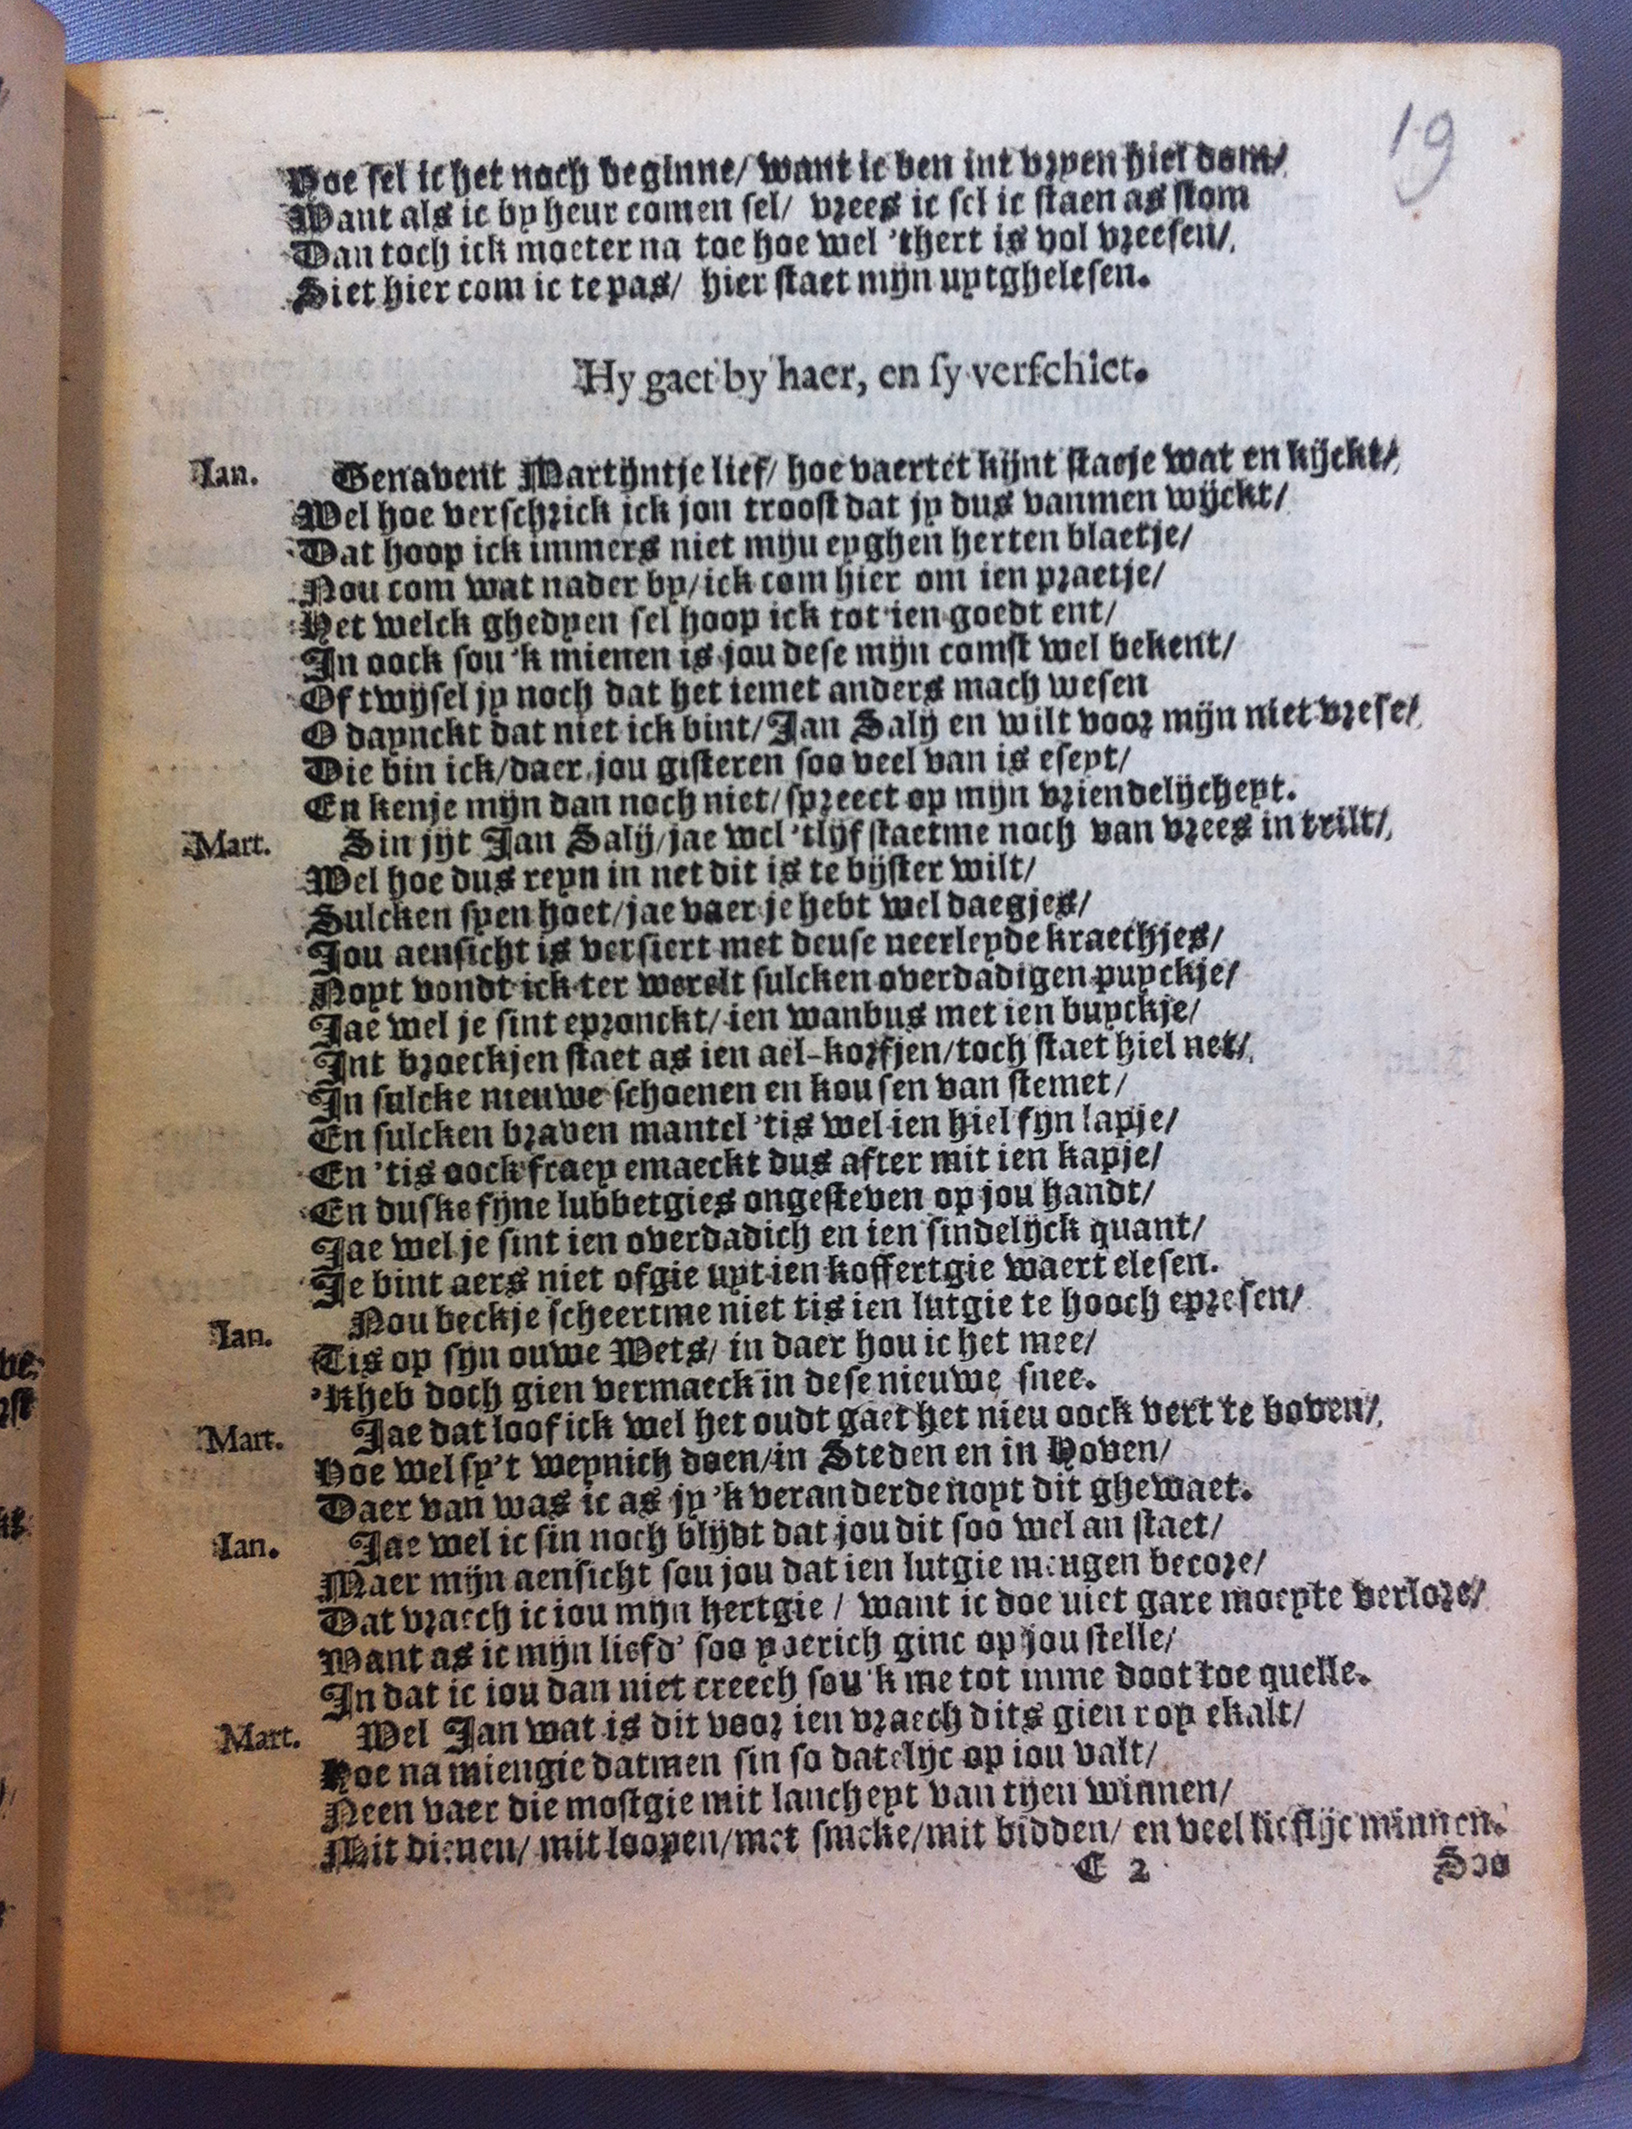 19
Hoe sel ic het noch beginne/ want ic ben int vryen hiel dom/
Want als ic by heur comen sel/ vrees ic sel ic staen as stom
Dan toch ick moeter na toe hoe wel 'thert is vol vreesen/
Siet hier com ic te pas/ hier staet mijn uytghelesen.
Hy gaet by haer, en sy verschiet.
Ian. Genavent Martijntje lief/ hoe vaertet kijnt staeje wat en kijckt/
Wel hoe verschrick ick jou troost dat jy dus vanmen wijckt/
Dat hoop ick immers niet mijn eyghen herten blaetje/
Nou com wat nader by/ ick com hier om ien praetje/
Het welck ghedyen sel hoop ick tot ien goedt ent/
In oock sou 'k mienen is jou dese mijn comst wel bekent/
Of twijsel jy noch dat het iemet anders mach wesen
O daynckt dat niet ick bint/ Jan Salij en wilt voor mijn niet vrese/
Die bin ick/ daer jou gisteren soo veel van is eseyt/
En kenje mijn dan noch niet/ spreect op mijn vriendelijcheyt.
Mart. Sin jijt Jan Salij/ jae wel 'tlijf staetme noch van vrees in trilt/
Wel hoe dus reyn in net dit is te bijster wilt/
Sulcken syen hoet/ jae vaer je hebt wel daegjes/
Jou aensicht is versiert met deuse neerleyde kraechjes/
Noyt vondt ick ter werelt sulcken overdadigen puyckje/
Jae wel je sint epronckt/ ien wanbus met ien buyckje/
Int broeckjen staet as ien ael-korfjen/ toch staet hiel net/
In sulcke nieuwe schoenen en kousen van stemet/
En sulcken braven mantel 'tis wel ien hiel fyn lapje/
En 'tis oock fraey emaeckt dus after mit ien kapje/
En duske fijne lubbetgies ongesteven op jou handt/
Jae wel je sint ien overdadich en ien sindelijck quant/
Je bint aers niet ofgie uyt ien koffertgie waert elesen.
Ian. Nou beckje scheertme niet tis ien lutgie te hooch epresen/
Tis op sijn ouwe Wets/ in daer hou ic het mee/
'Kheb doch gien vermaeck in dese nieuwe snee.
Mart. Jae dat loof ick wel het oudt gaet het nieu oock vert te boven/
Hoe wel sy't weynich doen/ in Steden en in Hoven/
Daer van was ic as jy 'k veranderde noyt dit ghewaet.
Ian. Jae wel ic sin noch blijdt dat jou dit soo wel an staet/
Maer mijn aensicht sou jou dat ien lutgie meugen becore/
Dat vraech ic iou mijn hertgie / want ic doe niet gare moeyte verlore/
Want as ic mijn liefd' soo yverich ginc op jou stelle/
In dat ic iou dan niet creech sou 'k me tot mme doot toe quelle.
Mart. Wel Jan wat is dit voor ien vraech dits gien rop ekalt/
Hoe na miengie datmen sin so datelijc op iou valt/
Neen vaer die mostgie mit lancheyt van tijen winnen/
Mit dienen/ mit loopen/ met smeke/ mit bidden/ en veel lieflijc minnen.
C 2
Soo